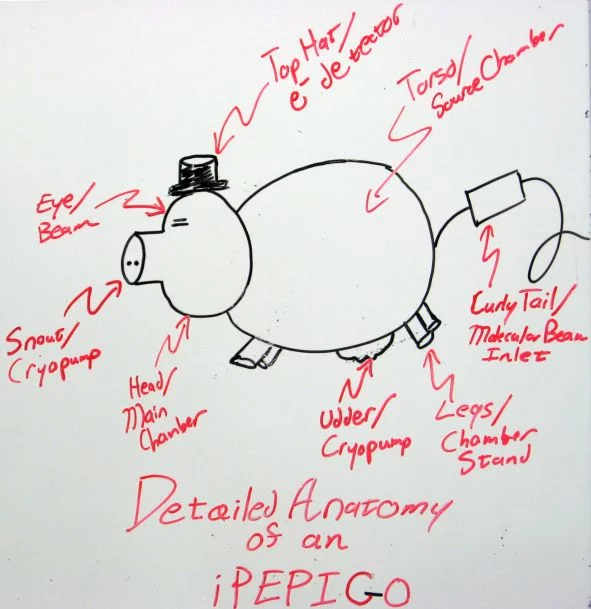 Top Hat/
e⁻ detector
Torso/
Source Chamber
Eye/
Beam
Snout/
Cryopump
Head/
Main
Chamber
Udder/
Cryopump
Legs/
Chamber
Stand
Curly Tail/
Molecular Beam
Inlet
Detailed Anatomy
of an
iPEPIGO